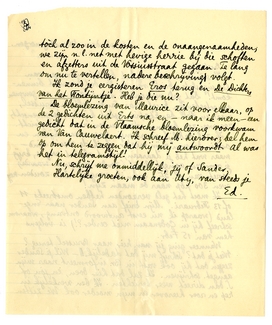 tòch al zoo in de kosten en de onaangenaamheden,
we zijn n.l. net met hevige herrie bij die schoften
en afzetters uit de Vossiusstraat gegaan. Te lang
om nu te vertellen, nadere beschrijving volgt.
Ik zond je eergisteren Eros terug en De Dichter
van het Heb je die nu?
De bloemlezing van Maurice zit voor elkaar, op
de 2 gedichten uit Erts na, en — naar ik meen — een
gedicht dat in de Vlaamsche bloemlezing voorkwam
van Van Cauwelaert. Ik schreef M. hierover; bel hem
op om hem te zeggen dat hij mij antwoordt. Al was
het in telegramstijl!
Nu, schrijf me onmiddellijk, jij of Sander.
Hartelijke groeten, ook aan van steeds je
Ed.